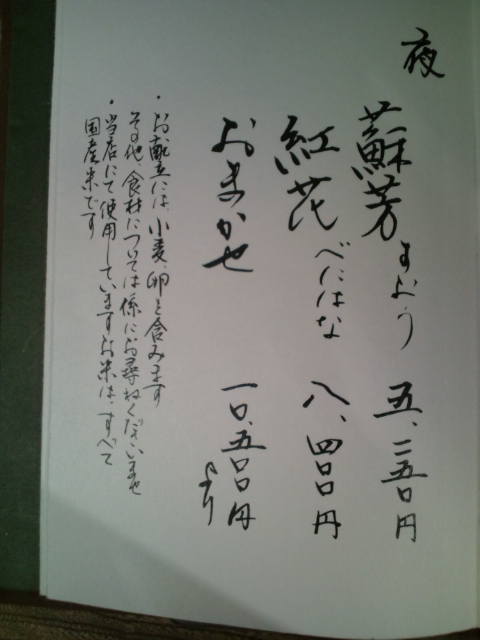 夜
蘇芳 すおう 五、二五〇円
紅花 べにはな 八、四〇〇円
おまかせ 一〇、五〇〇円より
・お献立には、小麦、卵を含みます
その他、食材については係にお尋ねくださいませ
・当店にて使用していますお米は、すべて
国産米です